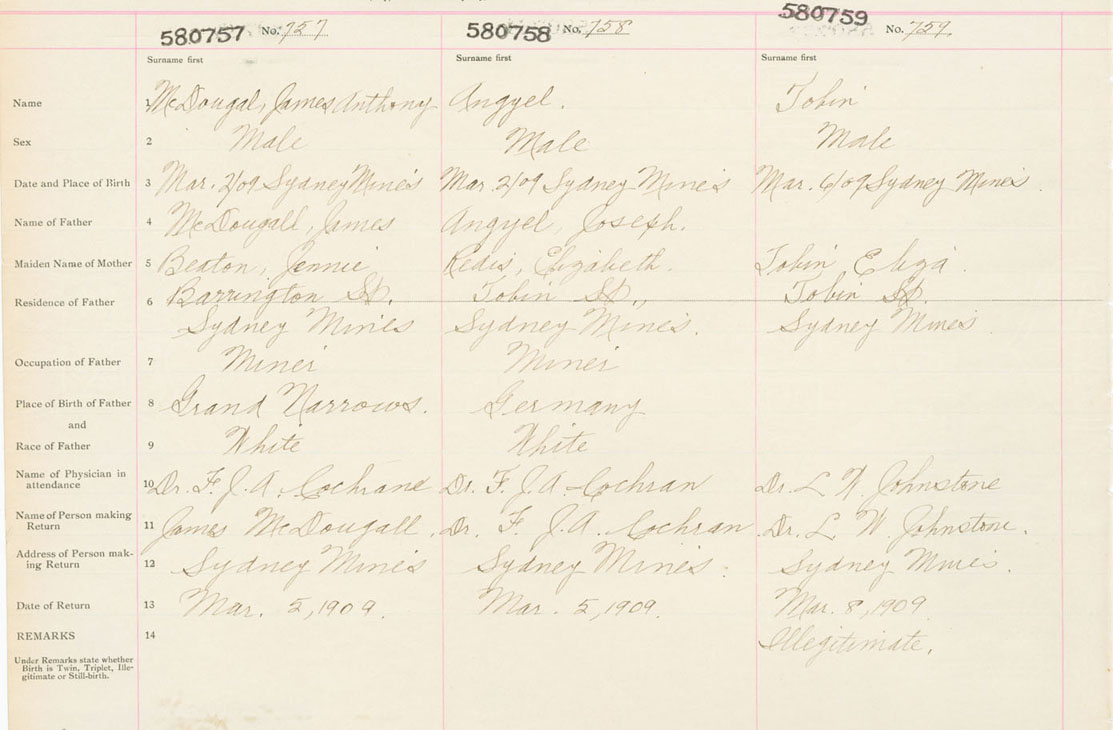 580757 No. 757 580758 No. 758 580759 No. 759
Surname first Surname first Surname first
Name 1 McDougal, James Anthony Angyel. Tobin
Sex 2 Male Male Male
Date and Place of Birth 3 Mar. 2/09 Sydney Mines Mar 2/09 Sydney Mines Mar. 6/09 Sydney Mines.
Name of Father 4 McDougall, James Angyel, Joseph.
Maiden Name of Mother 5 Beaton, Jennie Redis, Elizabeth. Tobin Eliza.
Residence of Father 6 Barrington St. Tobin St., Tobin St.
Sydney Mines Sydney Mines. Sydney Mines
Occupation of Father 7 Miner Miner
Place of Birth of Father 8 Grand Narrows. Germany
and
Race of Father 9 White White
Name of Physician in
attendance 10 Dr. F. J. A. Cochrane Dr. F. J. A. Cochran Dr. L W. Johnstone
Name of Person making
Return 11 James McDougall. Dr. F. J. A. Cochran Dr. L. W. Johnstone.
Address of Person mak-
ing Return 12 Sydney Mines Sydney Mines. Sydney Mines.
Date of Return 13 Mar. 5, 1909. Mar. 5, 1909. Mar. 8, 1909
REMARKS 14 Illegitimate.
Under Remarks state whether
Birth is Twin, Triplet, Ille-
gitimate or Still-birth.